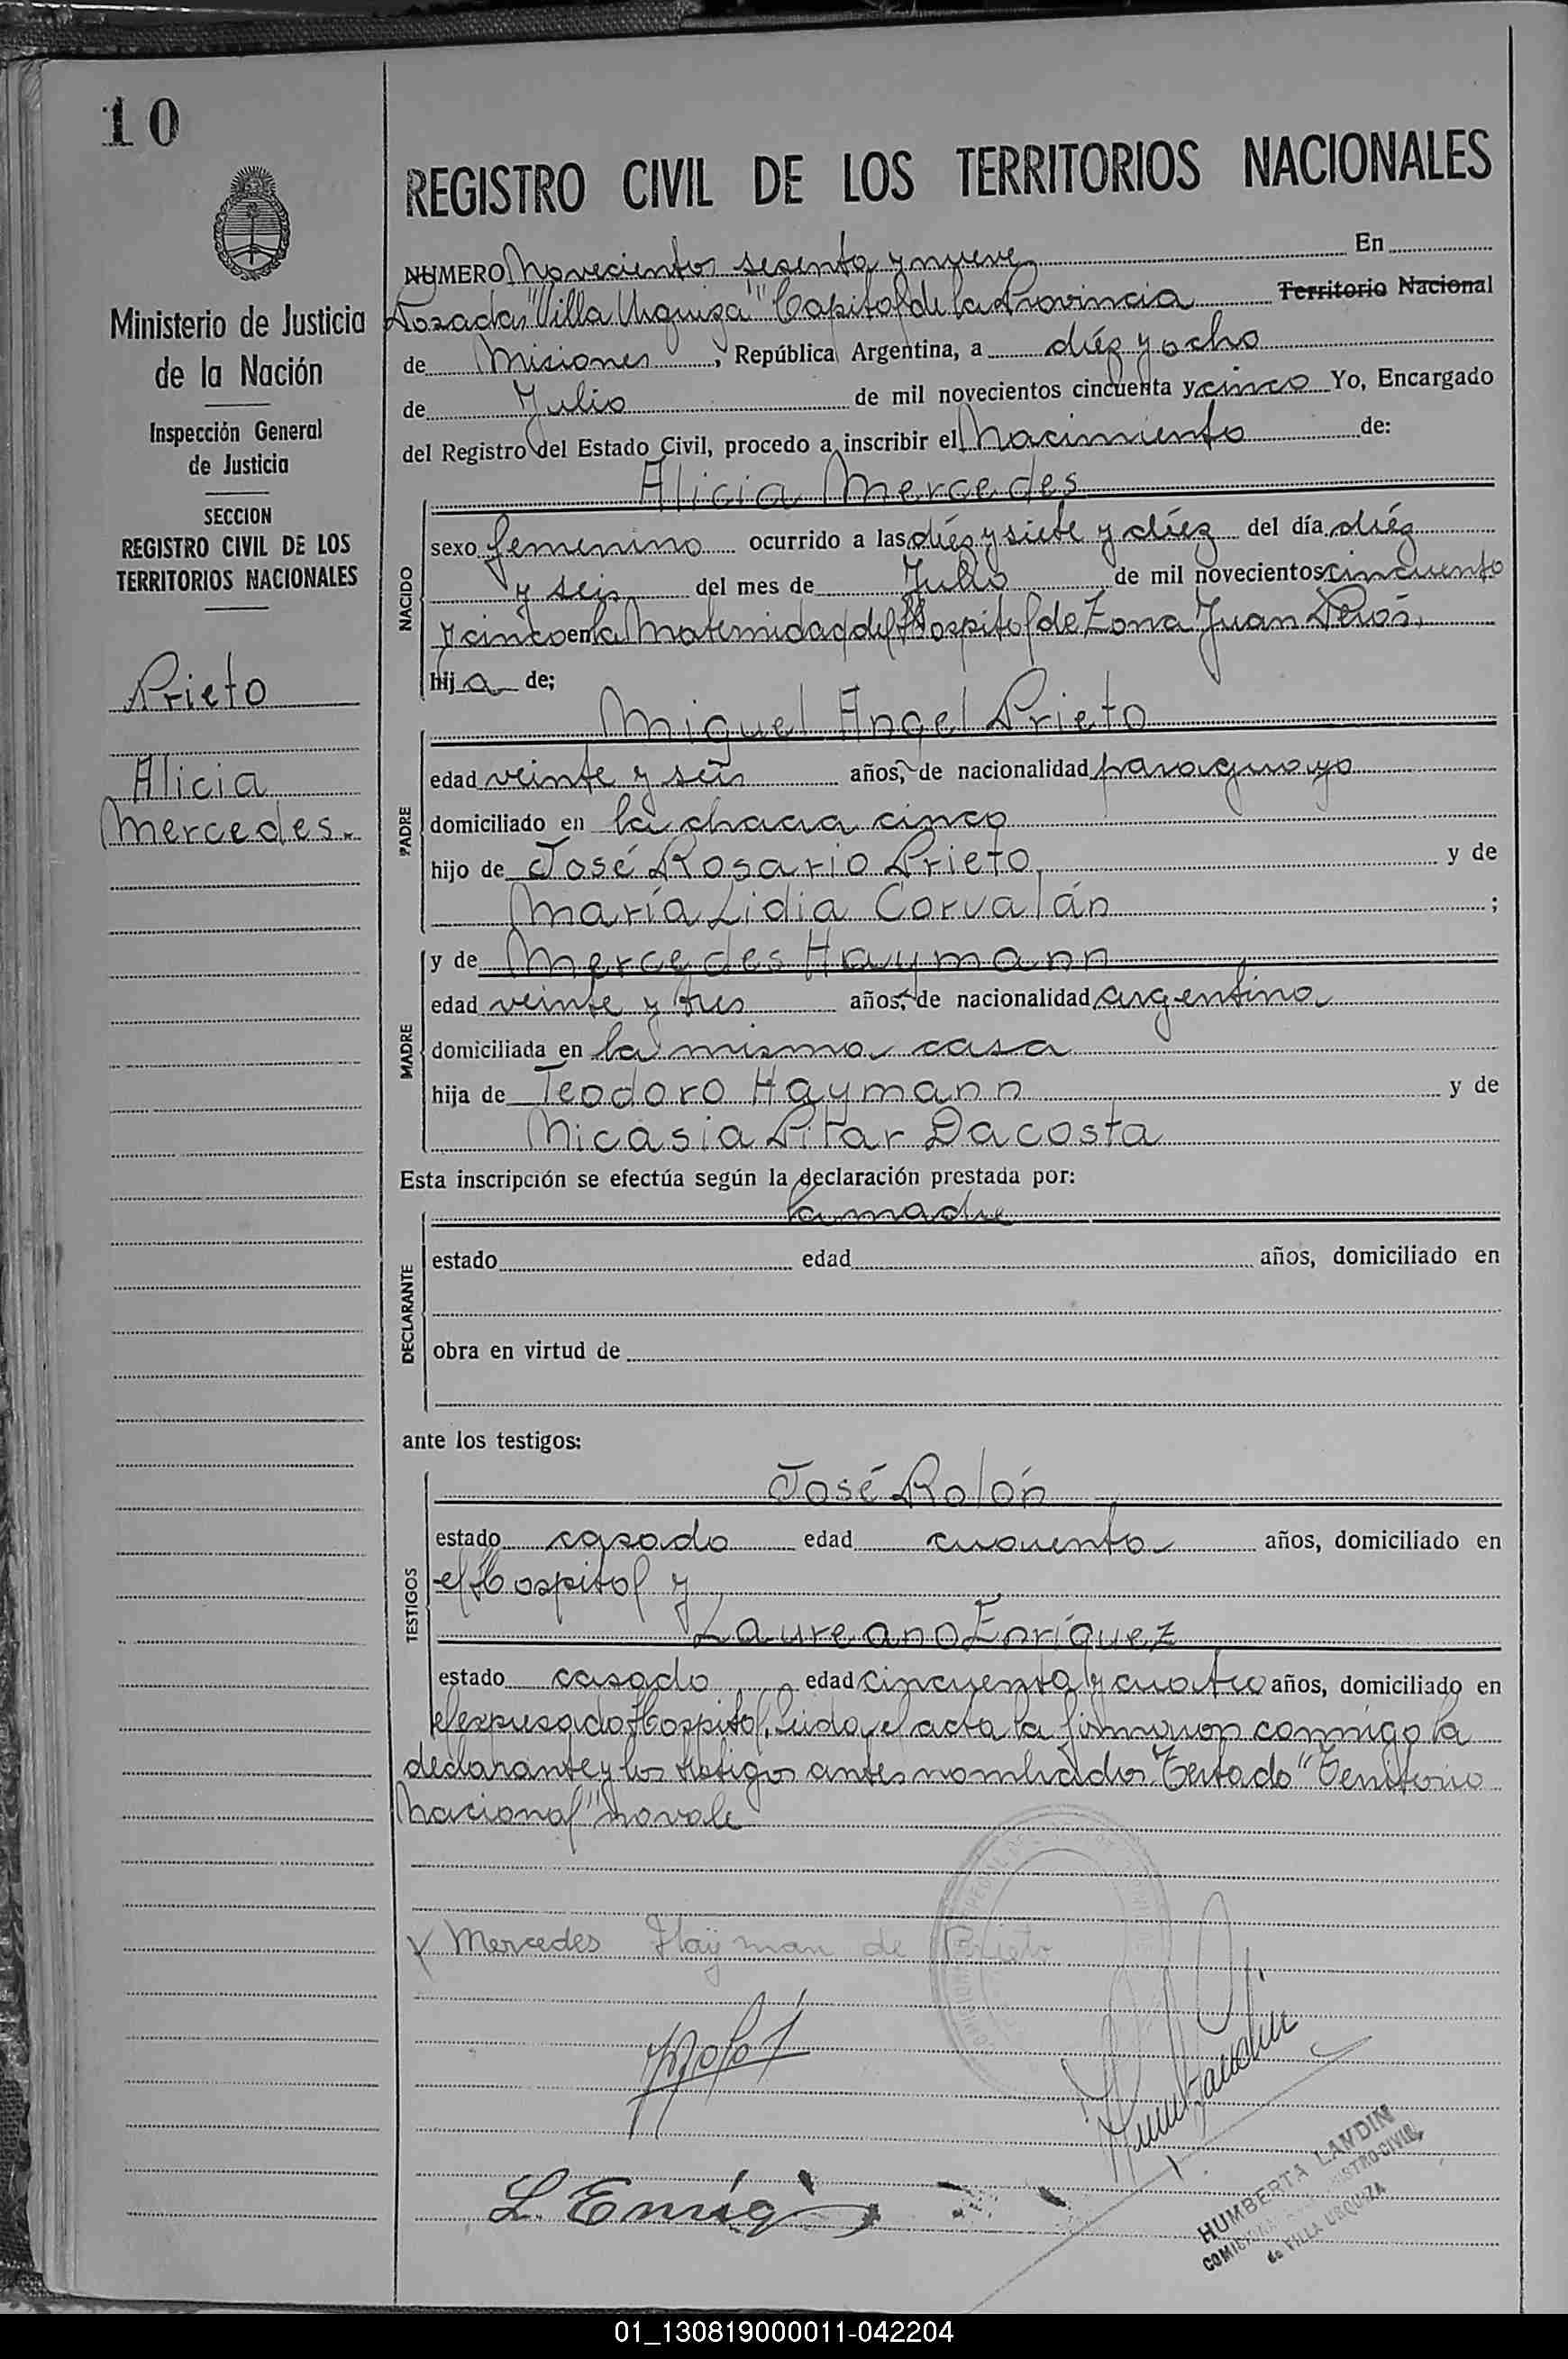 10
Ministerio de Justicia
de la Nación
Inspección General
de Justicia
SECCION
REGISTRO CIVIL DE LOS
TERRITORIOS NACIONALES
Prieto
Alicia
Mercedes.
REGISTRO CIVIL DE LOS TERRITORIOS NACIONALES
NUMERO Novecientos sesenta y nueve En
Posadas "Villa Urquiza" Capital de la Provincia Territorio Nacional
de Misiones, República Argentina, a diéz y ocho
de Julio de mil novecientos cincuenta y cinco Yo, Encargado
del Registro del Estado Civil, procedo a inscribir el Nacimiento de:
Alicia Mercedes
NACIDO
sexo femenino ocurrido a las diéz y siete y diéz del día diéz
y seis del mes de Julio de mil novecientos cincuenta
y cinco en la Maternidad del Hospital de Zona Juan Perós.
hija de;
Miguel Angel Prieto
PADRE
edad veinte y seis años, de nacionalidad paraguaya
domiciliado en la chacra cinco
hijo de José Rosario Prieto y de
María Lidia Corvalán ;
y de Mercedes Haymann
MADRE
edad veinte y tres años, de nacionalidad argentina
domiciliada en la misma casa
hija de Teodoro Haymann y de
Nicasia Pilar Dacosta
Esta inscripción se efectúa según la declaración prestada por:
la madre
DECLARANTE
estado edad años, domiciliado en
obra en virtud de
ante los testigos:
José Rolón
TESTIGOS
estado casado edad cuarenta años, domiciliado en
el Hospital y
Laureano Enríquez
estado casado edad cincuenta y cuatro años, domiciliado en
el expresado Hospital. Leida el acta la firmaron conmigo la
declarante y los testigos antes nombrados. Testado "Territorio
Nacional" no vale
Mercedes Hayman de Prieto
L. Enriq
HUMBERTA LANDIN
REGISTRO CIVIL
de VILLA URQUIZA
01_130819000011-042204